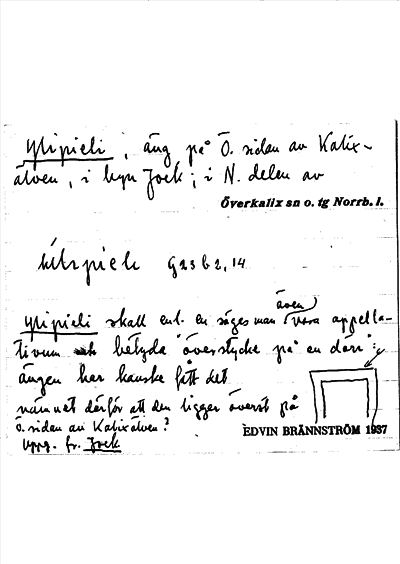 Ylipieli, äng på Ö. sidan av Kalix-
älven, i byn Jock; i N. delen av
Överkalix sn o. tg Norrb. l.
G23b2,14
Ylipieli skall enl. en sägesman även vara appella-
tivum och betyda "överstycke på en dörr":
ängen har kanske fått det
namnet därför att den ligger överst på
Ö. sidan av Kalixälven?
Uppg. fr. Jock
EDVIN BRÄNNSTRÖM 1937